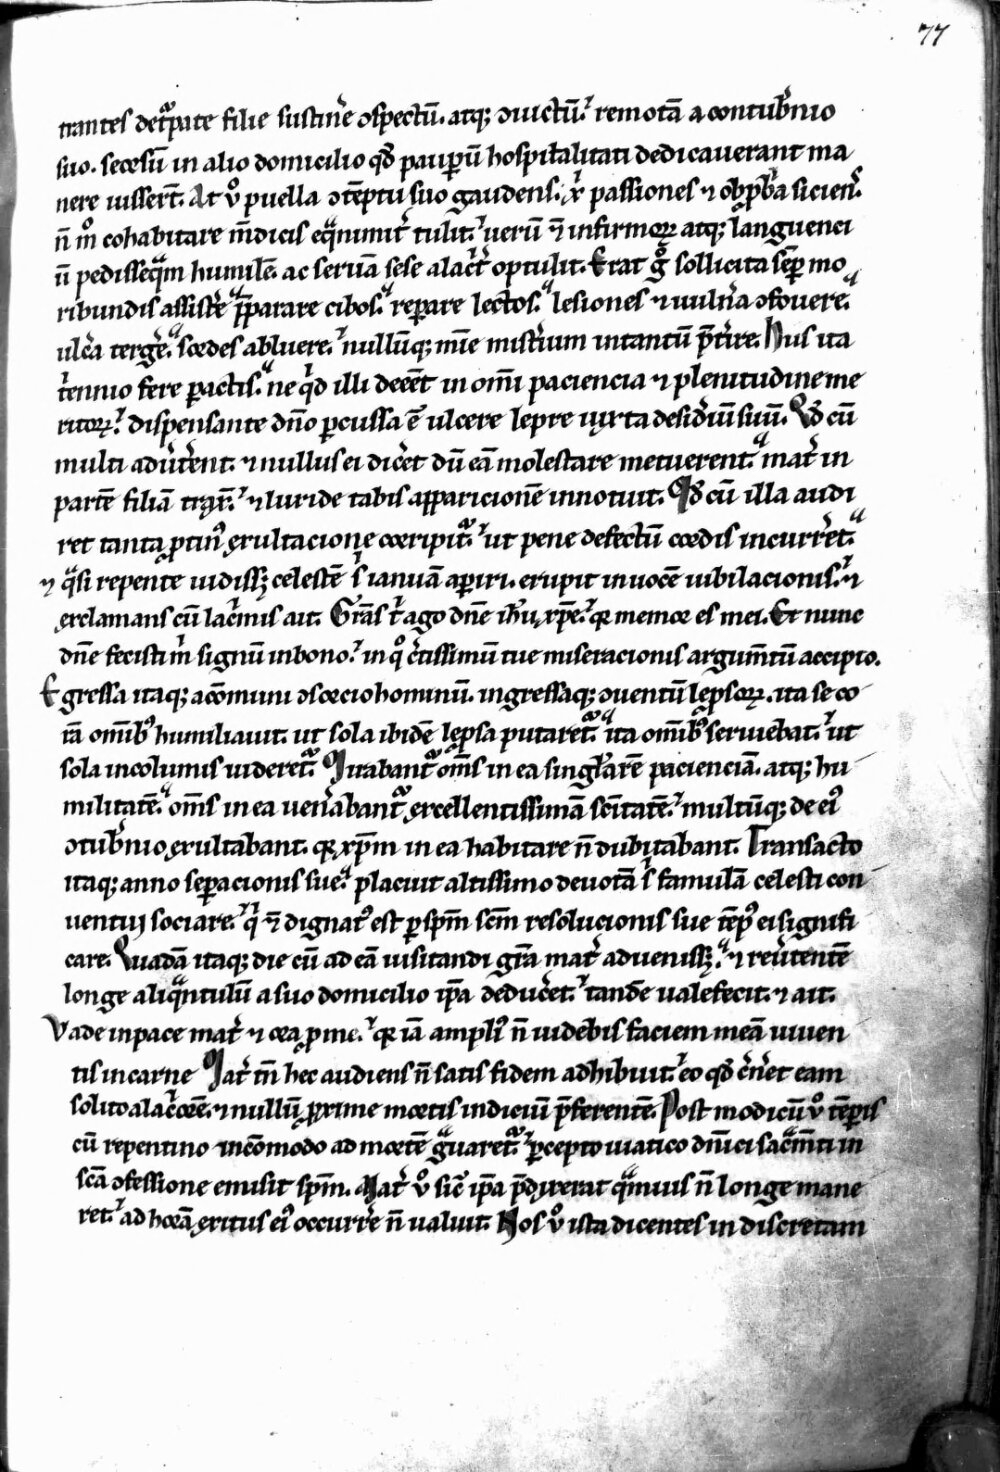 77
trantes det͛pate filie sustinẽ ꝯspectũ. atq; ꝯuictũ. remotã a contub̃nio
suo. secesũ in alio domicilio qđ paupeꝝũ hospitalitati dedicauerant ma
nere iusser̃t. At v̊ puella ꝯtẽptu suo gaudens. xp̃i passiones ⁊ obp̃b̃a siciens̃.
ñ m̊ cohabitare m̃dicis eqᷓnimit̃ tulit. uerũ ⁊ infirmoꝝ atq; languenci
ũ pedisseqᷓm humilẽ. ac seruã sese alac̃t̃ optulit. Erat g̊ sollicita sẽꝑ mo
ribundis assist̃e p̃parare cibos. reꝑare lectos. lesiones ⁊ uuln̄a ꝯfouere.
ulc̃a terg̃e. sordes abluere. nullũq; mĩe mist̃ium intantũ p̃t̃ire. Hus ita
t̃ennio fere ꝑactis. ne qͥd illi deẽet in om̃i paciencia ⁊ plenitudine me
ritoꝝ. dispensante dño ꝑcussa ẽ ulcere lepre iuxta desid̃iũ suũ. Qđ cũ
multi adũt̃ent. ⁊ nullus ei dic̃et dũ eã molestare metuerent. mat̃ in
partẽ filiã tᷓx̃. ⁊ luride tabis apparicionẽ innotuit. Qđ cũ illa audi
ret tanta ꝓtin̾ exultacione corripit᷑. ut pene defectũ cordis incurr̃et.
⁊ qᷓsi repente uidissꝫ celestẽ ẛ ianuã aꝑiri. erupit in uocẽ iubilacionis. ⁊
exclamans cũ lac̃mis ait. Gr̃as t̃ ago dñe ih̃u xp̃e. qꝛ memor es mei. Et nunc
dñe fecisti m̃ signũ in bono. in qͦ c̃tissimũ tue miseracionis argum̃tũ accipio.
Egressa itaq; a cõmuni ꝯsorcio hominũ. ingressaq; ꝯuentũ lep̃soꝝ. ita se co
rã om̃ib̾ humiliauit. ut sola ibidẽ lep̃sa putaret᷑. ita om̃ib̾ seruiebat. ut
sola incolumis uideret᷑. Mirabant᷑ om̃s in ea singl̃arẽ pacienciã. atq; hu
militatẽ. om̃s in ea uen̄abant᷑ excellentissimã sc̃itatẽ. multũq; de ei̾
ꝯtub̃nio exultabant. qꝛ xp̃m in ea habitare ñ dubitabant. Transacto
itaq; anno seꝑacionis sue. placuit altissimo deuotã ẛ famulã celesti con
uentui sociare. qͥ ⁊ dignat̾ est ꝑ sp̃m sc̃m resolucionis sue tẽp̾ ei signifi
care. Quadã itaq; die cũ ad eã uisitandi gr̃a mat̃ aduenissꝫ. ⁊ reũtentẽ
longe aliqᷓntulũ a suo domicilio ip̃a deduc̃et. tandẽ ualefecit. ⁊ ait.
Vade in pace mat̃ ⁊ ora ꝓ me. qꝛ iã ampli̾ ñ uidebis faciem meã uiuen
tis in carne Mat̃ tñ hec audiens ñ satis fidem adhibuit. eo qđ c̃neret eam
solito alac̃orẽ. ⁊ nullũ ꝓxime mortis indiciũ p̃ferentẽ. Post modicũ v̊ tẽꝑis
cũ repentino incõmodo ad mortẽ gᷓuaret᷑. ꝑcepto uiatico dñici sac̃m̃ti in
sc̃a ꝯfessione emisit sp̃m. Mat̃ v̊ sic̃ ip̃a p̃dixerat qᷓmuis ñ longe mane
ret. ad horã exitus ei̾ occurr̃e ñ ualuit. Nos v̊ ista dicentes indiscretam